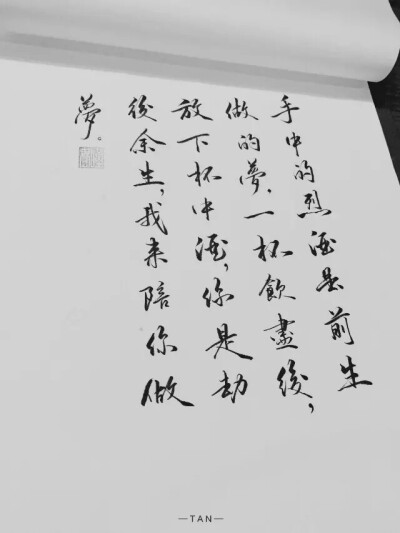 手中的烈酒是前生
做的夢，一杯飲盡後，
放下杯中酒，你是劫
後余生，我来陪你做
夢。
—TAN—